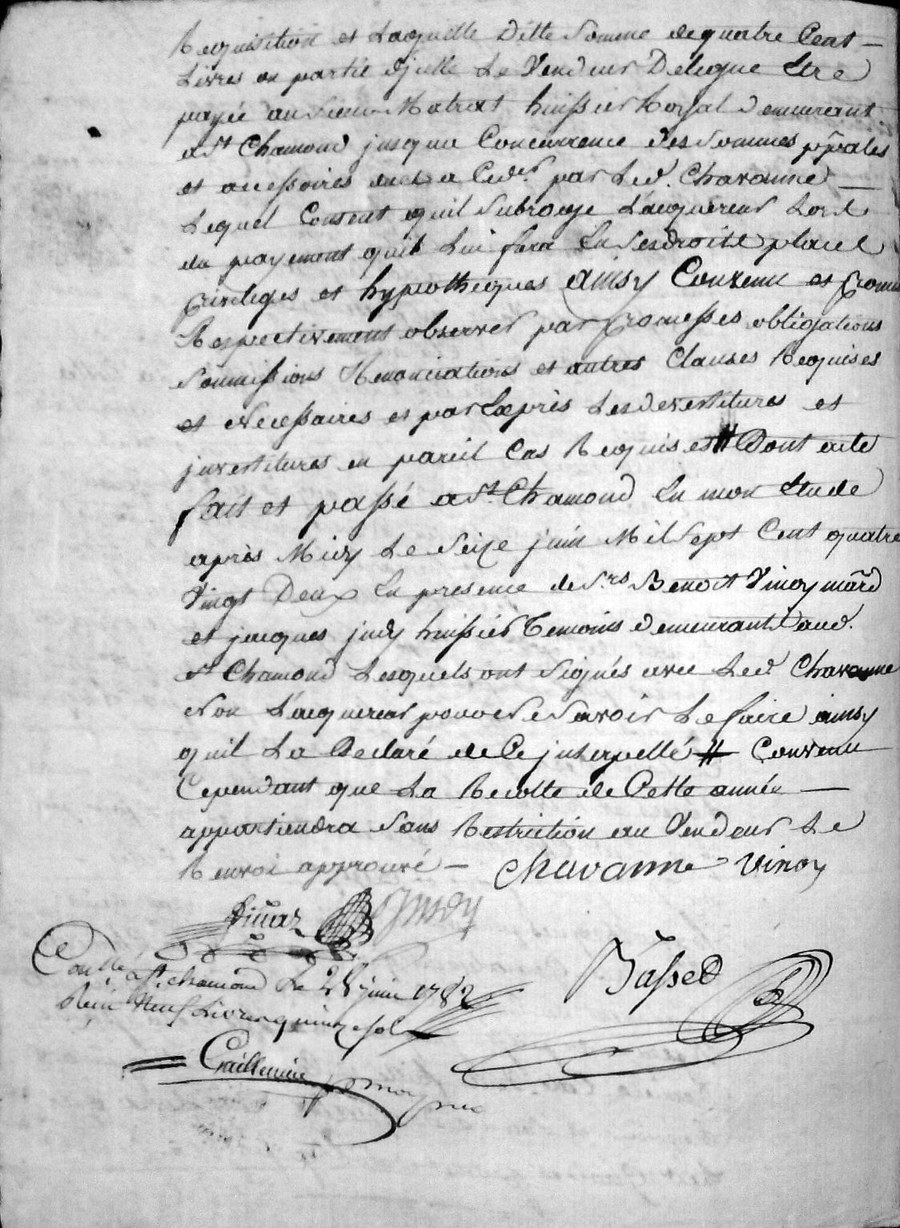 Requisition et Laquelle Ditte Somme de quatre Cent
Livres ou partie dicelle Le Vendeur Delegue Etre
payée au Sieur Matrat huissier Royal demeurant
a St Chamond jusqua Concurrence des Sommes pp̃ales
et accessoires par Led. Chavanne
Lequel Consent quil Subroge Lacquereur Lors
du payement quil Lui fera En Ses droits place
Privileges et hypotheques ainsy Convenu et Promis
Respectivement observer par Promesses obligations
Soumissions Renonciations et autres Clauses Requises
et Necessaires et par Exprès Les devestitures et
jnvestitures en pareil Cas Requises # Dont acte
fait et passé a St. Chamond En mon Etude
après Midy Le Seize juin Mil Sept Cent quatre
Vingt Deux En presence de Srs Benoit Vinoy mãrd
et jacques judy huissier Temoins demeurants aud.
St Chamond Lesquels ont Signés avec Led Chavanne
Non Lacquereur pour ne Savoir Le faire ainsy
quil La Declaré de Ce jnterpellé # Convenu
Cependant que La Recolte de Cette année
appartiendra Sans Restriction au Vendeur Le
Renvoi approuvé Chavanne Vinoy
Finaz
Basset
Conllé a St. chamond le 28 juin 1782
Neuf Livres quinze sols
Guillemin